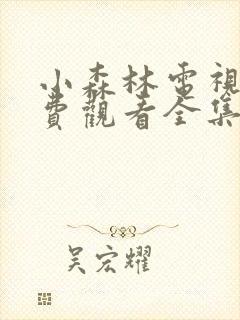 小森林電視
費觀看全集
吴宏耀